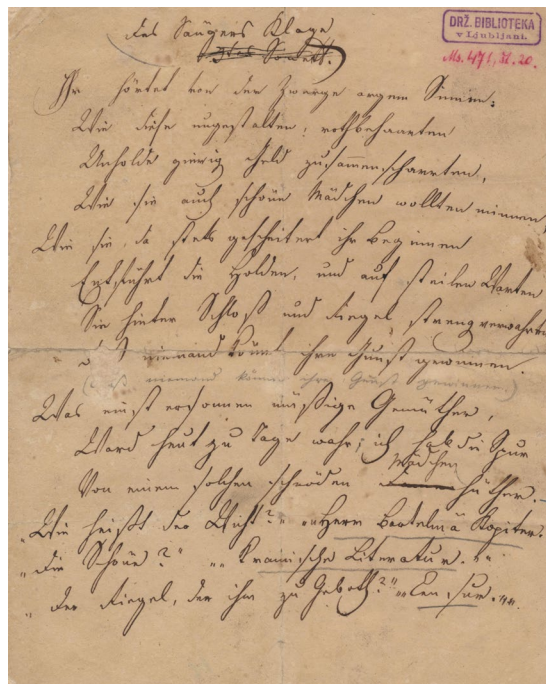 Des Sängers Klage
Sonett.
DRŽ. BIBLIOTEKA
v Ljubljani.
Ms. 471, 20.
Ihr hörtet von der Zwerge argem Sinnen:
Wie diese ungestalten, rothbehaarten
Unholde gierig Geld zusammenscharrten,
Wie sie auch schöne Mädchen wollten minnen,
Wie sie, da stets gescheitert ihr Beginnen
Entführt die Holden, und auf steilen Warten
Sie hinter Schloß und Riegel streng verwahrten
niemand könnt ihre Gunst gewinnen.
niemand könne ihre Gunst gewinnen)
Was einst ersonnen müßige Gemüther,
Ward heut zu Tage wahr; ich hab die Spur
Mädchen
Von einem solchen schnöden hüther. –
„Wie heißt der Wicht?“ „„Herr Bartelmä Kopiter.
„Die Schöne?“ „„Krainische Literatur.““
„Der Riegel, der ihm zu Geboth?“ „„Censur.““